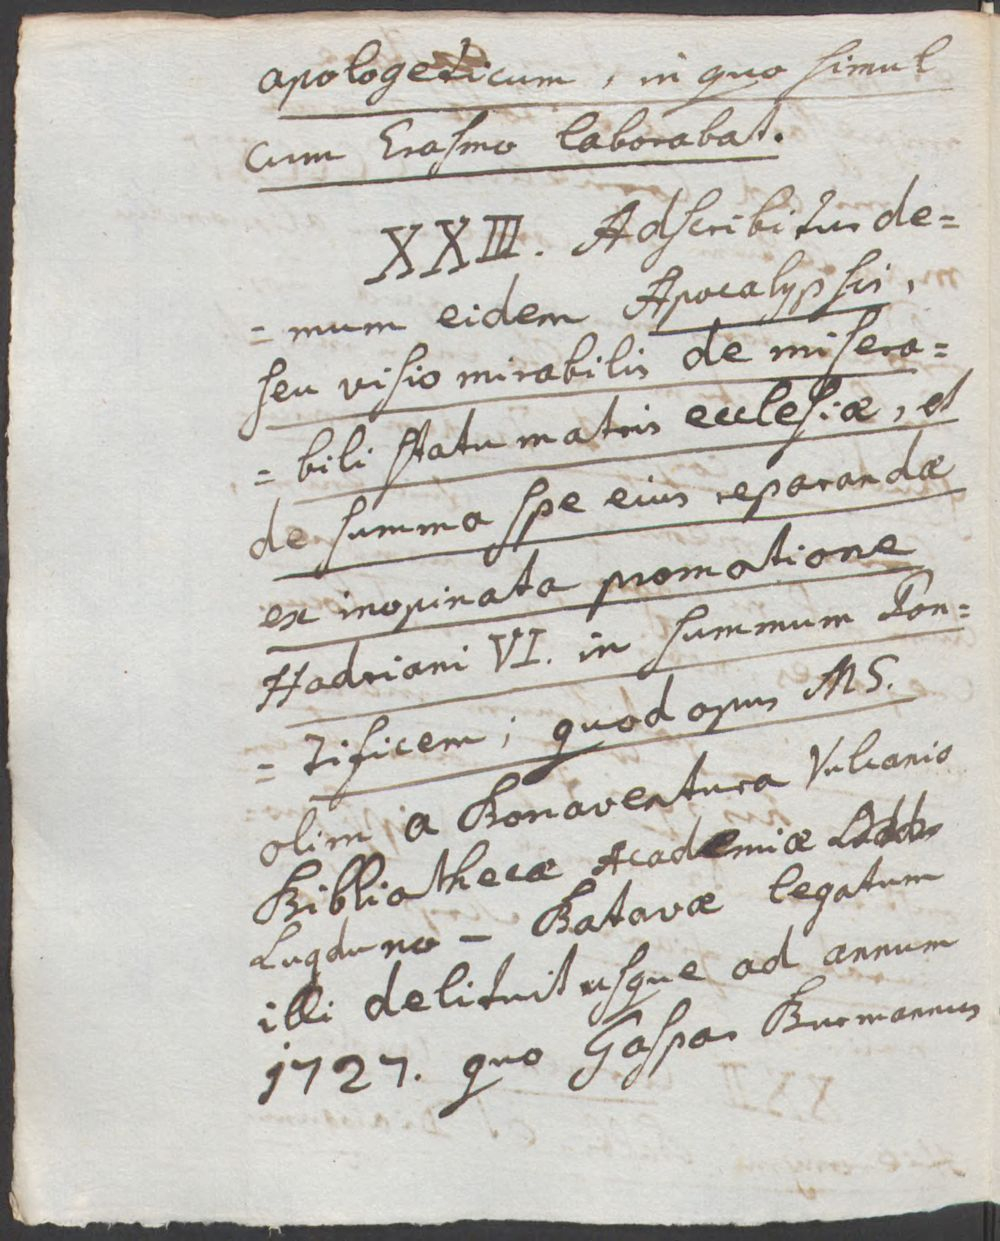 apologeticum, in quo simul
cum Erasmo laborabat.
XXIII. Adscribitur de=
=mum eidem Apocalypsis,
seu visio mirabilis de misera=
=bili statu matris ecclesiæ, et
de summa spe eius reparandæ
ex inopinata promotione
Hadriani VI. in summum Pon=
=tificem; quod opus MS.
olim a Bonaventura Vulcanio
Bibliothecæ Academiæ
Lugduno - Batavæ legatum
illi delituit usque ad annum
1727. quo Gaspar Burmannus